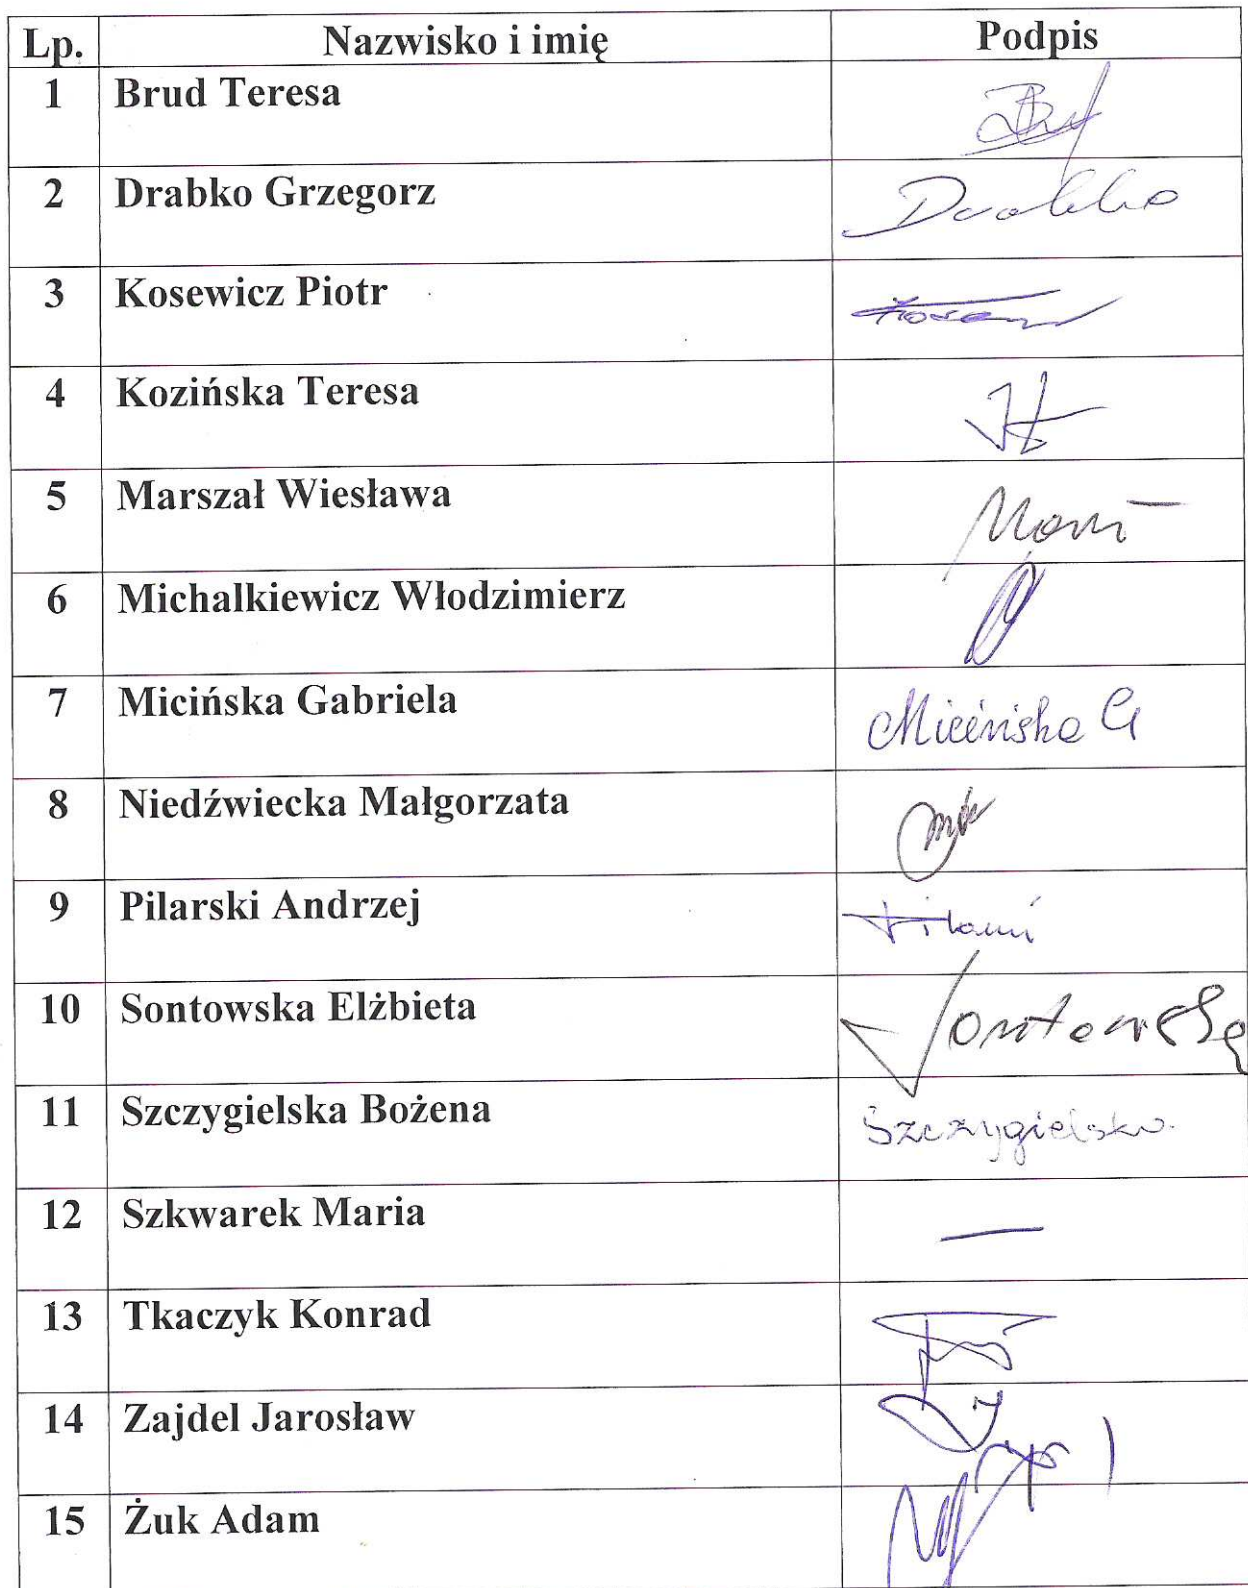 Lp. Nazwisko i imię Podpis
1 Brud Teresa
2 Drabko Grzegorz Drabko
3 Kosewicz Piotr
4 Kozińska Teresa
5 Marszał Wiesława
6 Michalkiewicz Włodzimierz
7 Micińska Gabriela Micińska G
8 Niedźwiecka Małgorzata
9 Pilarski Andrzej
10 Sontowska Elżbieta Sontowska
11 Szczygielska Bożena Szczygielska
12 Szkwarek Maria —
13 Tkaczyk Konrad
14 Zajdel Jarosław
15 Żuk Adam